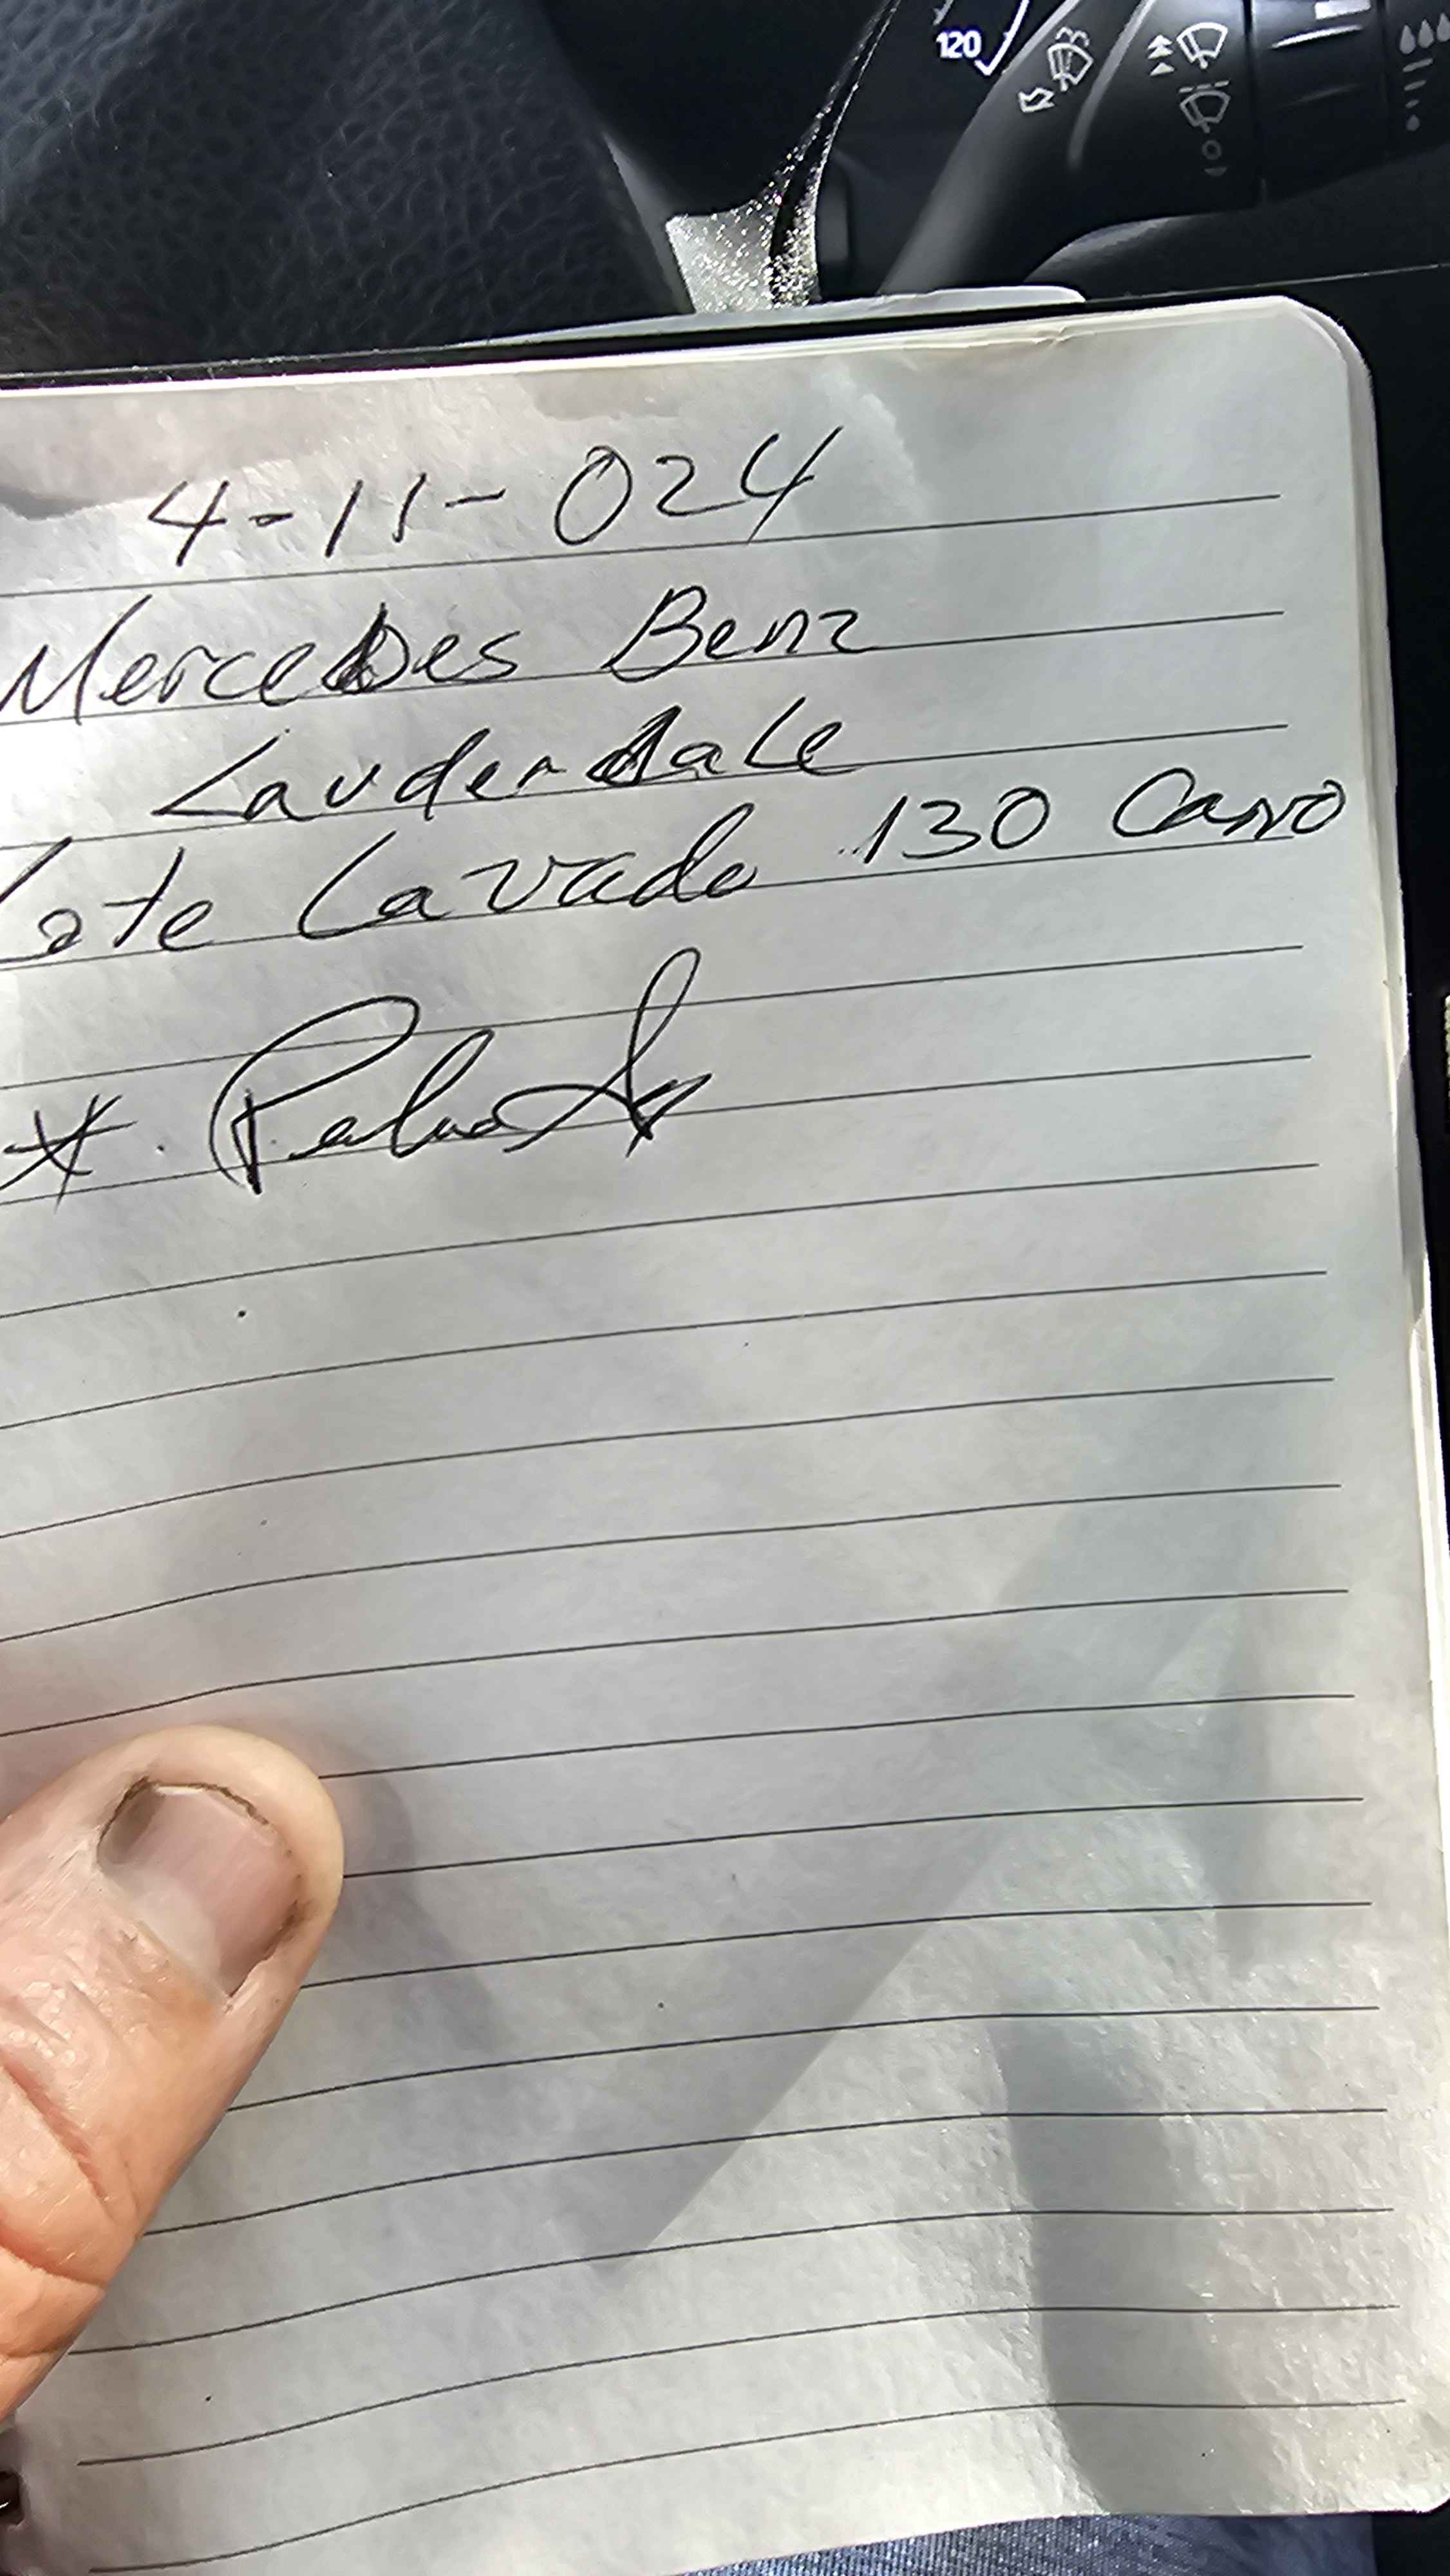 120
4-11-024
Mercedes Benz
Lauderdale
Lote Lavado 130 Carro
*